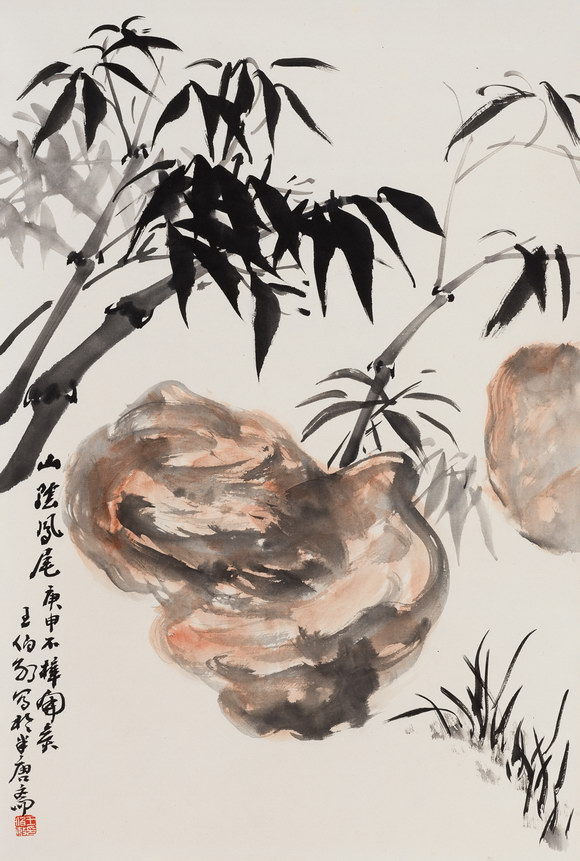 山陰鳳尾
庚申不梓
王伯敏寫於半唐齋